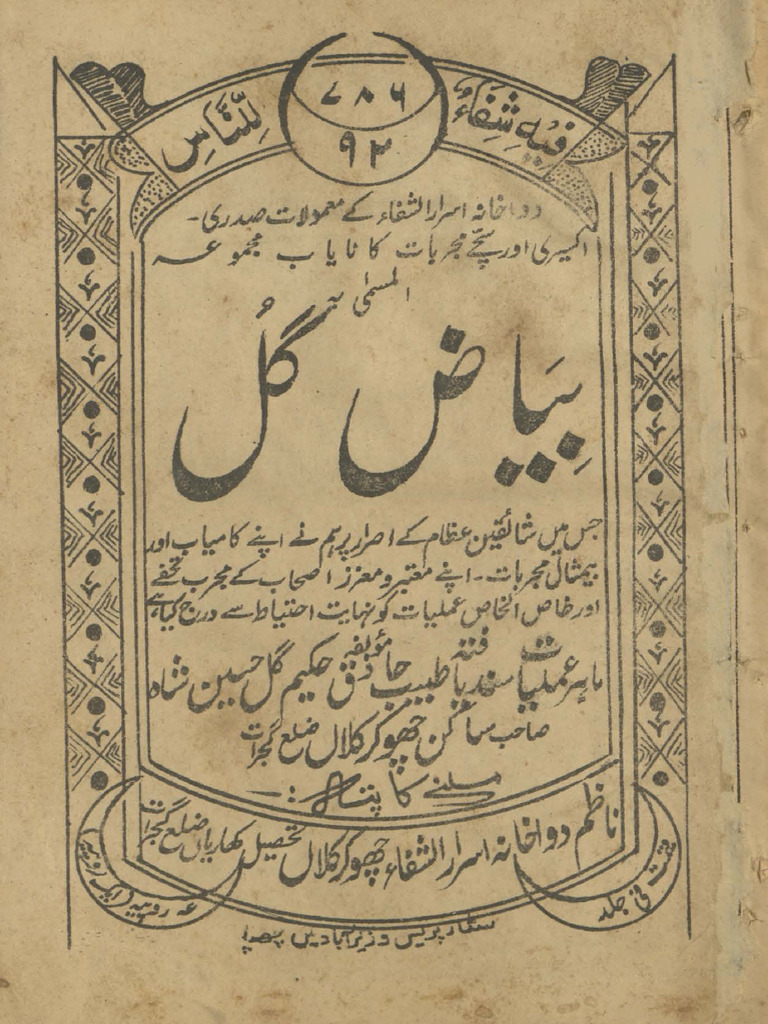 فِيْهِ شِفَآءٌ لِّلنَّاسِ
۷۸۶
۹۲
دواخانہ اسرار الشفاء کے معمولات صدری۔
اکسیری اور سچّے مجربات کا نایاب مجموعہ
المسمیٰ بہ
بِیَاض گُل
جس میں شائقین عظام کے اصرار پر ہم نے اپنے کامیاب اور
بیمثال مجربات۔ اپنے معتبر و معزز اصحاب کے مجرب تحفے
اور خاص الخاص عملیات کو نہایت احتیاط سے درج کیا ہے
مؤلفہ
ماہر عملیات سند یافتہ طبیب حاذق حکیم گل حسین شاہ
صاحب ساکن چھوکر کلاں ضلع گجرات
ملنے کا پتہ:۔
ناظم دواخانہ اسرار الشفاء چھوکر کلاں تحصیل کھاریاں ضلع گجرات
قیمت فی جلد
عہ روپیہ (ایک روپیہ)
ستار پریس وزیر آباد میں چھپا